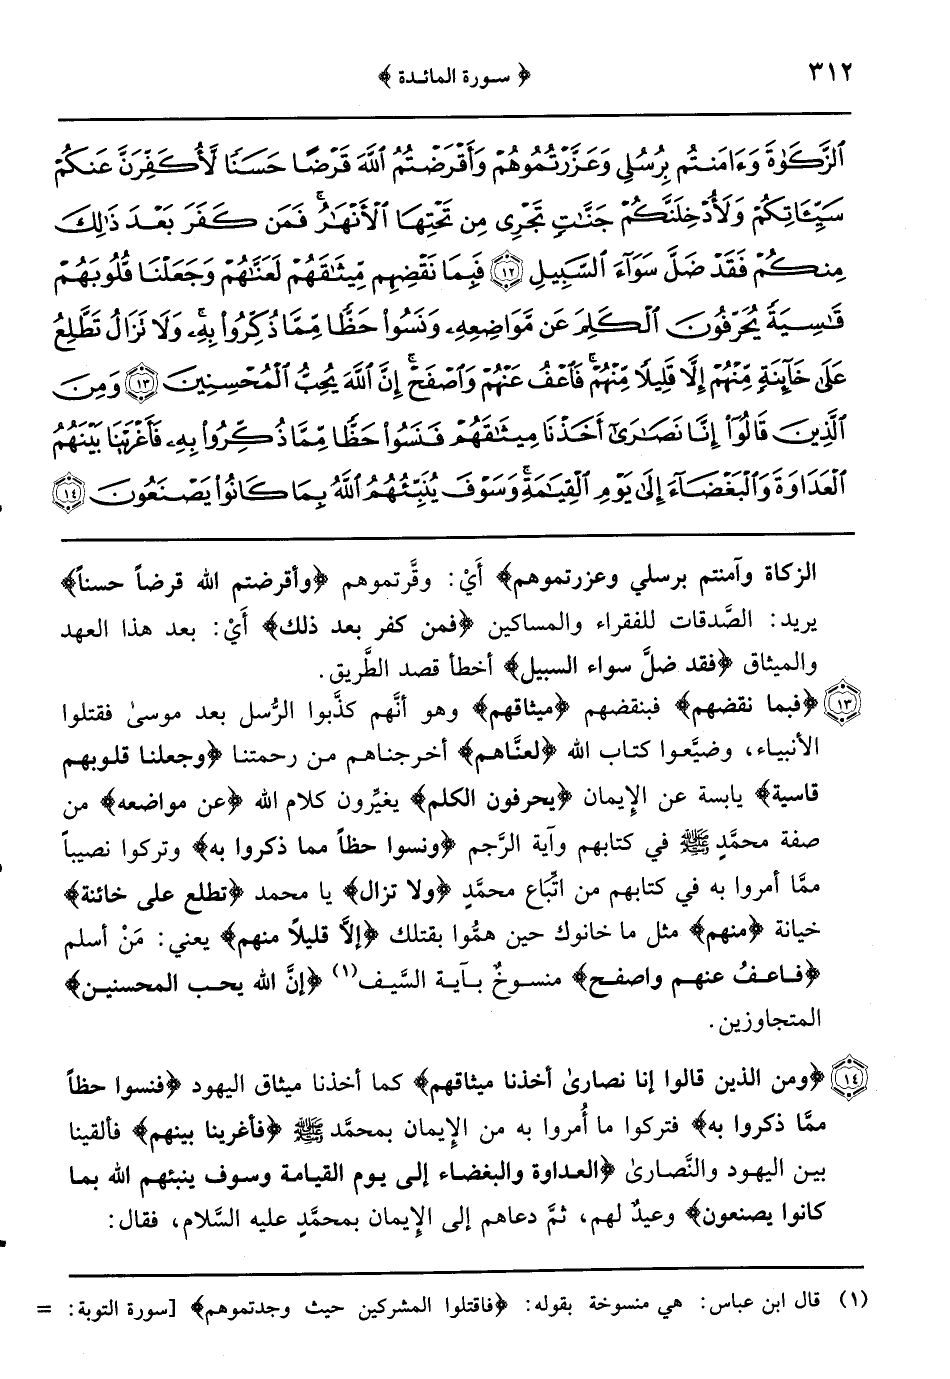 ٣١٢
﴿ سورة المائدة ﴾
ٱلزَّكَوٰةَ وَءَامَنتُم بِرُسُلِي وَعَزَّرْتُمُوهُمْ وَأَقْرَضْتُمُ ٱللَّهَ قَرْضًا حَسَنًا لَّأُكَفِّرَنَّ عَنكُمْ
سَيِّـَٔاتِكُمْ وَلَأُدْخِلَنَّكُمْ جَنَّٰتٍ تَجْرِى مِن تَحْتِهَا ٱلْأَنْهَٰرُ ۚ فَمَن كَفَرَ بَعْدَ ذَٰلِكَ
مِنكُمْ فَقَدْ ضَلَّ سَوَآءَ ٱلسَّبِيلِ ١٢ فَبِمَا نَقْضِهِم مِّيثَٰقَهُمْ لَعَنَّٰهُمْ وَجَعَلْنَا قُلُوبَهُمْ
قَٰسِيَةً يُحَرِّفُونَ ٱلْكَلِمَ عَن مَّوَاضِعِهِۦ وَنَسُوا۟ حَظًّا مِّمَّا ذُكِّرُوا۟ بِهِۦ ۚ وَلَا تَزَالُ تَطَّلِعُ
عَلَىٰ خَآئِنَةٍ مِّنْهُمْ إِلَّا قَلِيلًا مِّنْهُمْ ۖ فَٱعْفُ عَنْهُمْ وَٱصْفَحْ ۚ إِنَّ ٱللَّهَ يُحِبُّ ٱلْمُحْسِنِينَ ١٣ وَمِنَ
ٱلَّذِينَ قَالُوٓا۟ إِنَّا نَصَٰرَىٰٓ أَخَذْنَا مِيثَٰقَهُمْ فَنَسُوا۟ حَظًّا مِّمَّا ذُكِّرُوا۟ بِهِۦ فَأَغْرَيْنَا بَيْنَهُمُ
ٱلْعَدَاوَةَ وَٱلْبَغْضَآءَ إِلَىٰ يَوْمِ ٱلْقِيَٰمَةِ ۚ وَسَوْفَ يُنَبِّئُهُمُ ٱللَّهُ بِمَا كَانُوا۟ يَصْنَعُونَ ١٤
الزكاة وآمنتم برسلي وعزرتموهم﴾ أَيْ: وقَّرتموهم ﴿وأقرضتم الله قرضاً حسناً﴾
يريد: الصَّدقات للفقراء والمساكين ﴿فمن كفر بعد ذلك﴾ أَيْ: بعد هذا العهد
والميثاق ﴿فقد ضلَّ سواء السبيل﴾ أخطأ قصد الطَّريق.
١٣ ﴿فبما نقضهم﴾ فبنقضهم ﴿ميثاقهم﴾ وهو أنَّهم كذَّبوا الرُّسل بعد موسىٰ فقتلوا
الأنبياء، وضيَّعوا كتاب الله ﴿لعنَّاهم﴾ أخرجناهم من رحمتنا ﴿وجعلنا قلوبهم
قاسية﴾ يابسة عن الإِيمان ﴿يحرفون الكلم﴾ يغيِّرون كلام الله ﴿عن مواضعه﴾ من
صفة محمَّدٍ ﷺ في كتابهم وآية الرَّجم ﴿ونسوا حظاً مما ذكروا به﴾ وتركوا نصيباً
ممَّا أمروا به في كتابهم من اتِّباع محمَّدٍ ﴿ولا تزال﴾ يا محمد ﴿تطلع على خائنة﴾
خيانة ﴿منهم﴾ مثل ما خانوك حين همُّوا بقتلك ﴿إلاَّ قليلاً منهم﴾ يعني: مَنْ أسلم
﴿فاعفُ عنهم واصفح﴾ منسوخٌ بآية السَّيف(١) ﴿إنَّ الله يحب المحسنين﴾
المتجاوزين.
١٤ ﴿ومن الذين قالوا إنا نصارىٰ أخذنا ميثاقهم﴾ كما أخذنا ميثاق اليهود ﴿فنسوا حظاً
ممَّا ذكروا به﴾ فتركوا ما أُمروا به من الإِيمان بمحمَّد ﷺ ﴿فأغرينا بينهم﴾ فألقينا
بين اليهود والنَّصارىٰ ﴿العداوة والبغضاء إلى يوم القيامة وسوف ينبئهم الله بما
كانوا يصنعون﴾ وعيدٌ لهم، ثمَّ دعاهم إلى الإِيمان بمحمَّدٍ عليه السَّلام، فقال:
(١) قال ابن عباس: هي منسوخة بقوله: ﴿فاقتلوا المشركين حيث وجدتموهم﴾ [سورة التوبة: =